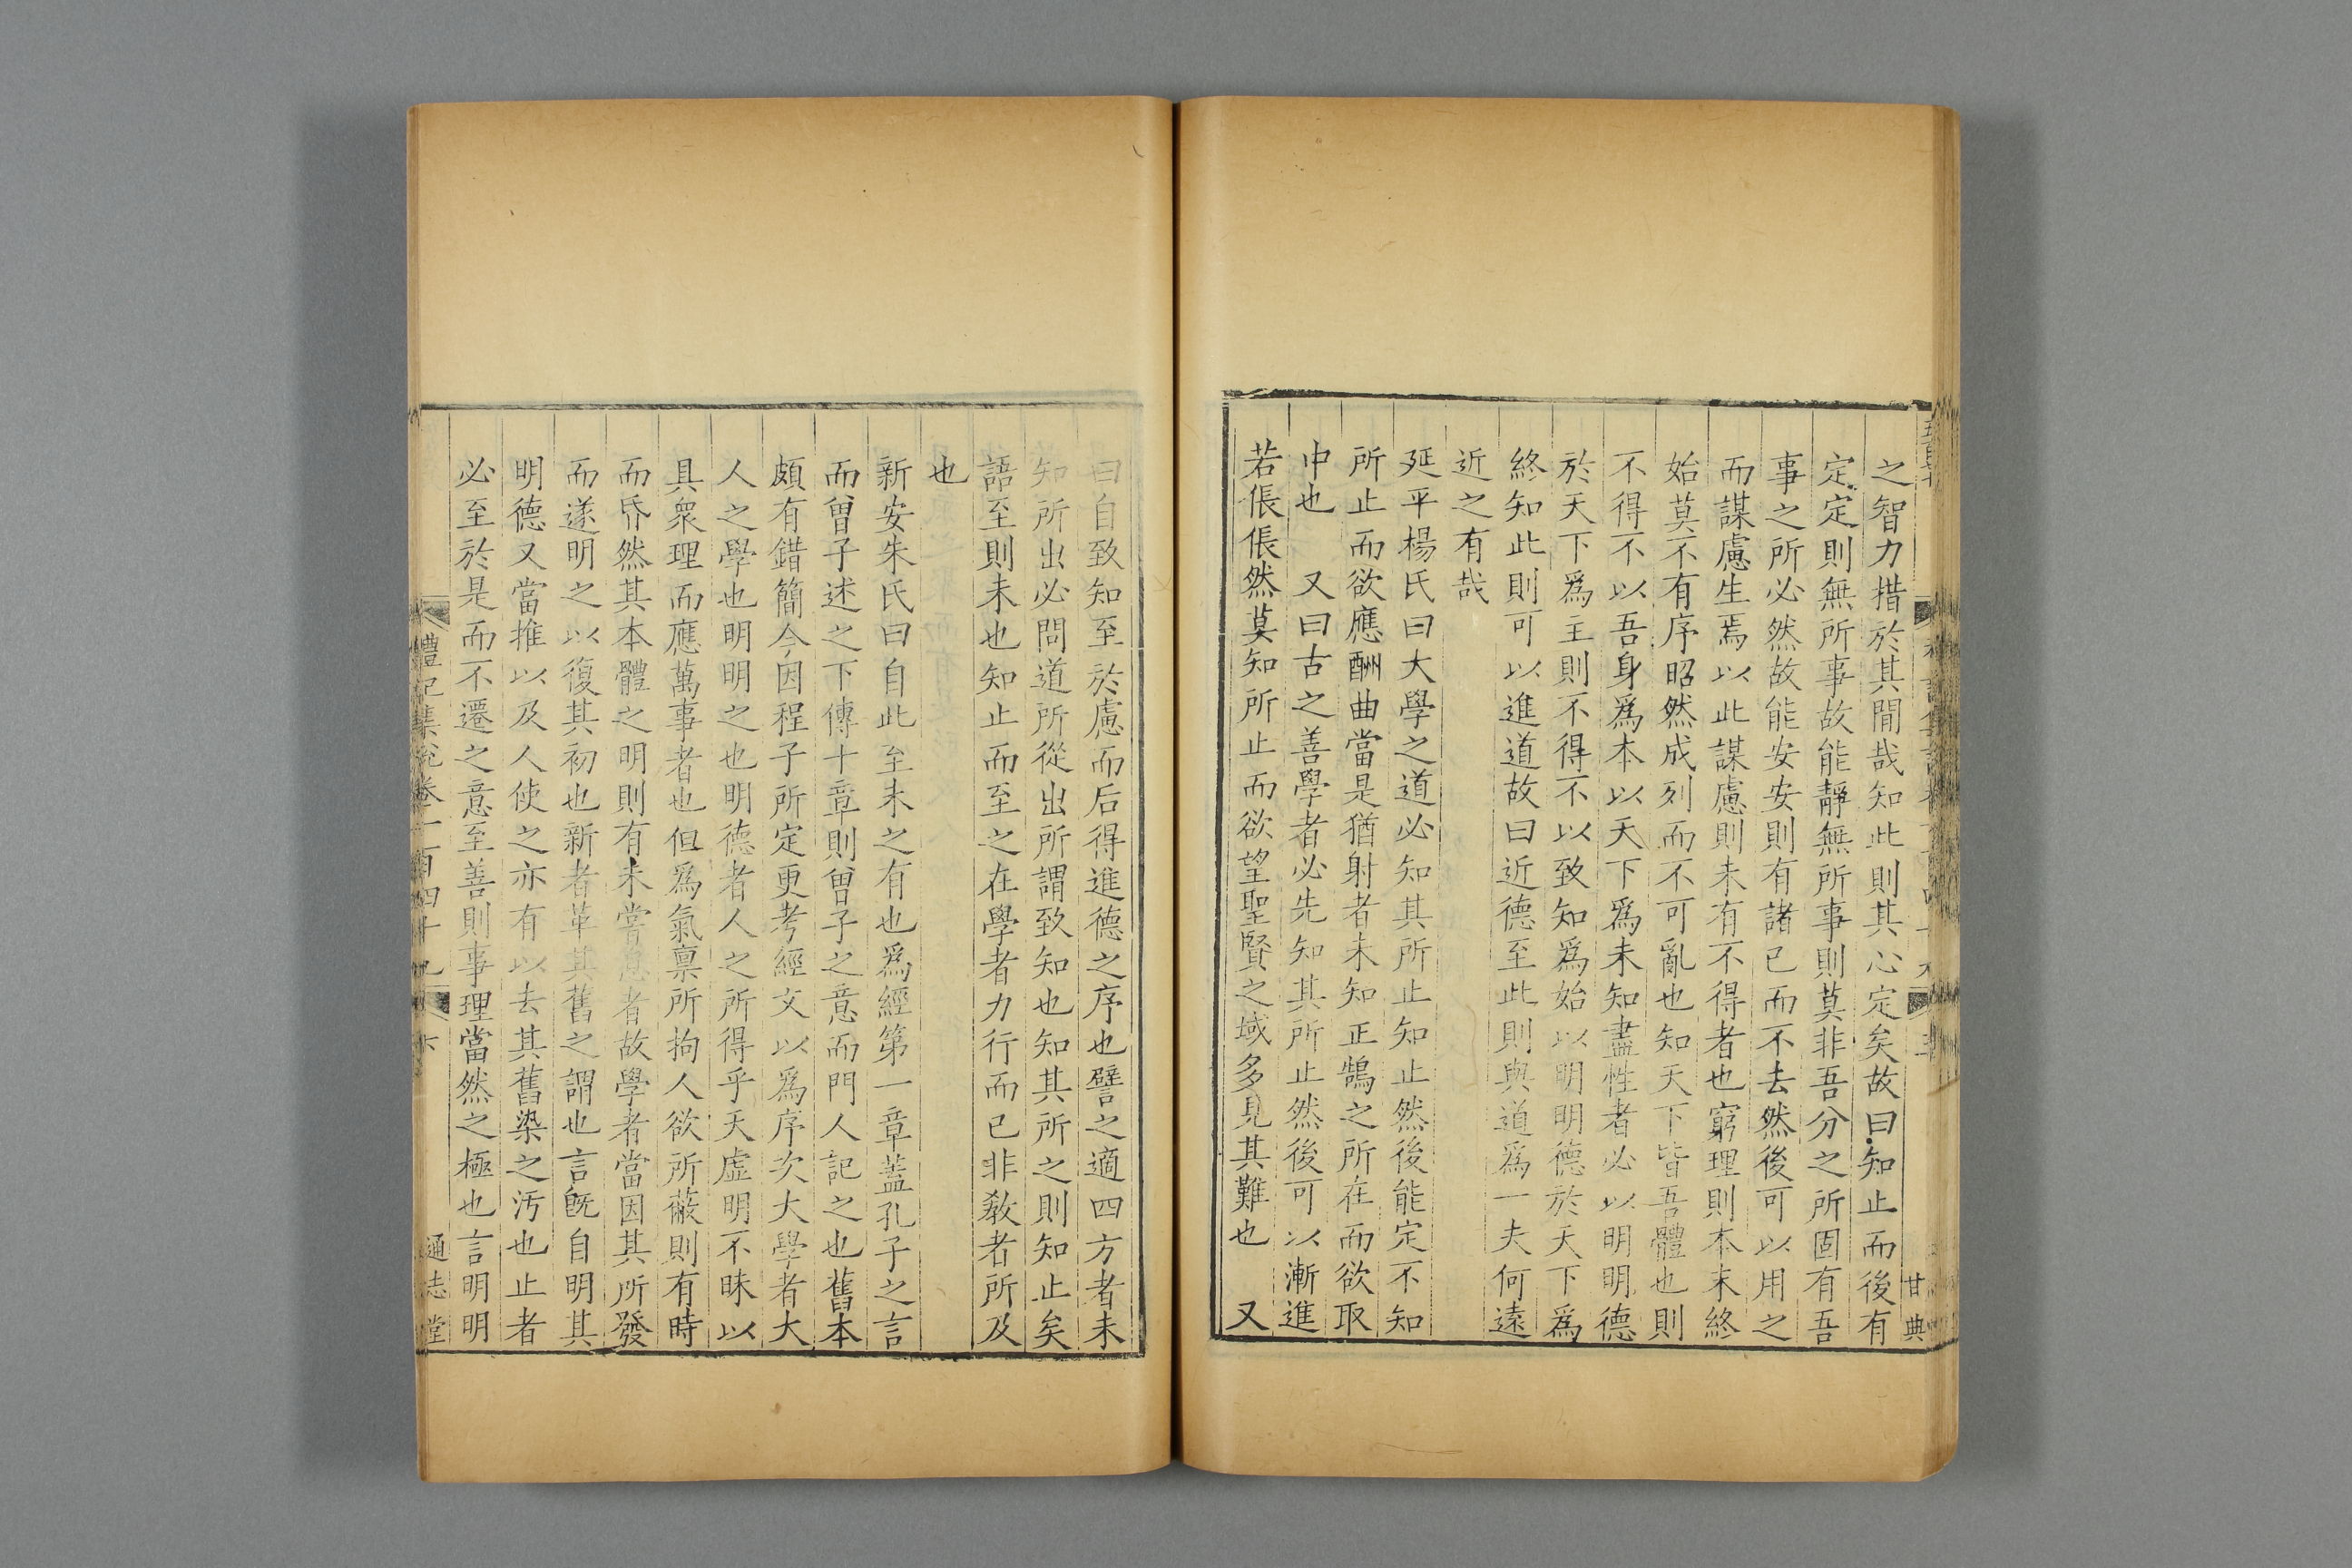 之智力措於其閒哉知此則其心定矣故曰知止而後有
定定則無所事故能靜無所事則莫非吾分之所固有吾
事之所必然故能安安則有諸已而不去然後可以用之
而謀慮生焉以此謀慮則未有不得者也窮理則本末終
始莫不有序昭然成列而不可亂也知天下皆吾體也則
不得不以吾身爲本以天下爲末知盡性者必以明明德
於天下爲主則不得不以致知爲始以明明德於天下爲
終知此則可以進道故曰近德至此則與道爲一夫何遠
近之有哉
延平楊氏曰大學之道必知其所止知止然後能定不知
所止而欲應酬曲當是猶射者未知正鵠之所在而欲取
中也 又曰古之善學者必先知其所止然後可以漸進
若倀倀然莫知所止而欲望聖賢之域多見其難也 又
曰自致知至於慮而后得進德之序也譬之適四方者未
知所出必問道所從出所謂致知也知其所之則知止矣
語至則未也知止而至之在學者力行而已非敎者所及
也
新安朱氏曰自此至未之有也爲經第一章蓋孔子之言
而曾子述之下傳十章則曾子之意而門人記之也舊本
頗有錯簡今因程子所定更考經文以爲序次大學者大
人之學也明明之也明德者人之所得乎天虛明不昧以
具衆理而應萬事者也但爲氣禀所拘人欲所蔽則有時
而昏然其本體之明則有未嘗息者故學者當因其所發
而遂明之以復其初也新者革其舊之謂也言旣自明其
明德又當推以及人使之亦有以去其舊染之汚也止者
必至於是而不遷之意至善則事理當然之極也言明明
禮記集說卷一百四十九 六 通志堂
甘典